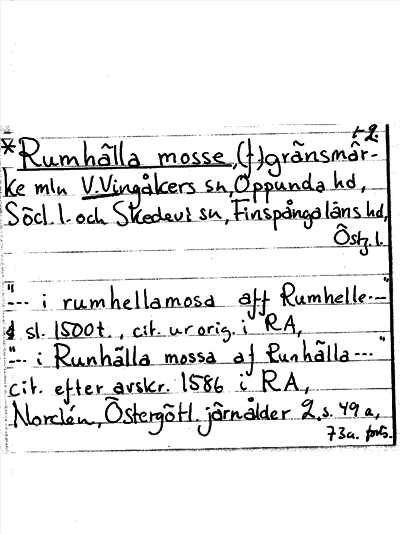 1-2.
*Rumhälla mosse, (f)gränsmär-
ke mln V.Vingåkers sn, Oppunda hd,
Södl.l. och Skedevi sn, Finspånga läns hd,
Östg.l.
"--- i rumhellamosa aff Rumhelle---"
sl. 1500t., cit. ur orig. i RA,
"--- i Runhälla mossa af Runhälla---"
cit. efter avskr. 1586 i RA,
Nordén, Östergötl. järnålder 2, s. 49 a,
73a. forts.